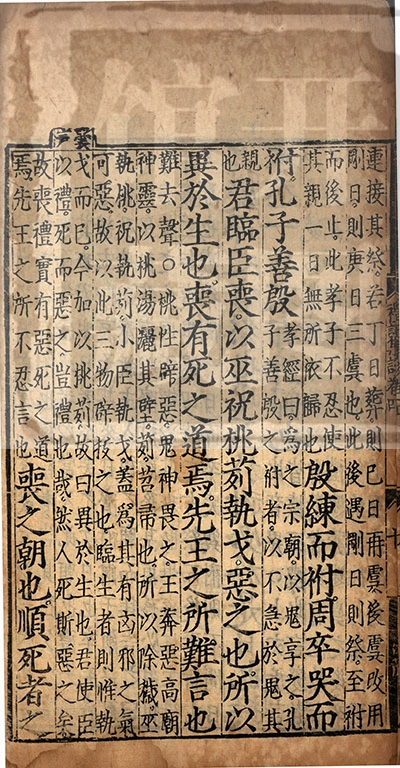 連接其祭若丁日葬則己日再虞後虞改用
剛日則庚日三虞也此後遇剛日則祭至祔
而後止此孝子不忍使
其親一日無所依歸也
殷練而祔周卒哭而
祔孔子善殷
孝經曰為之宗廟以鬼享之孔
子善殷之祔者以不急於鬼其
親
也
君臨臣喪以巫祝桃茢執戈惡之也所以
異於生也喪有死之道焉先王之所難言也
難去聲○桃性辟惡鬼神畏之王莽惡高廟
神靈以桃湯灑其壁茢苕帚也所以除穢巫
執桃祝執茢小臣執戈蓋為其有凶邪之氣
可惡故以此三物辟祓之也臨生者則惟執
戈而已今加以桃茢故曰異於生也君使臣
以禮死而惡之豈禮也哉然人死斯惡之矣
故喪禮實有惡死之道
焉先王之所不忍言也
喪之朝也順死者之